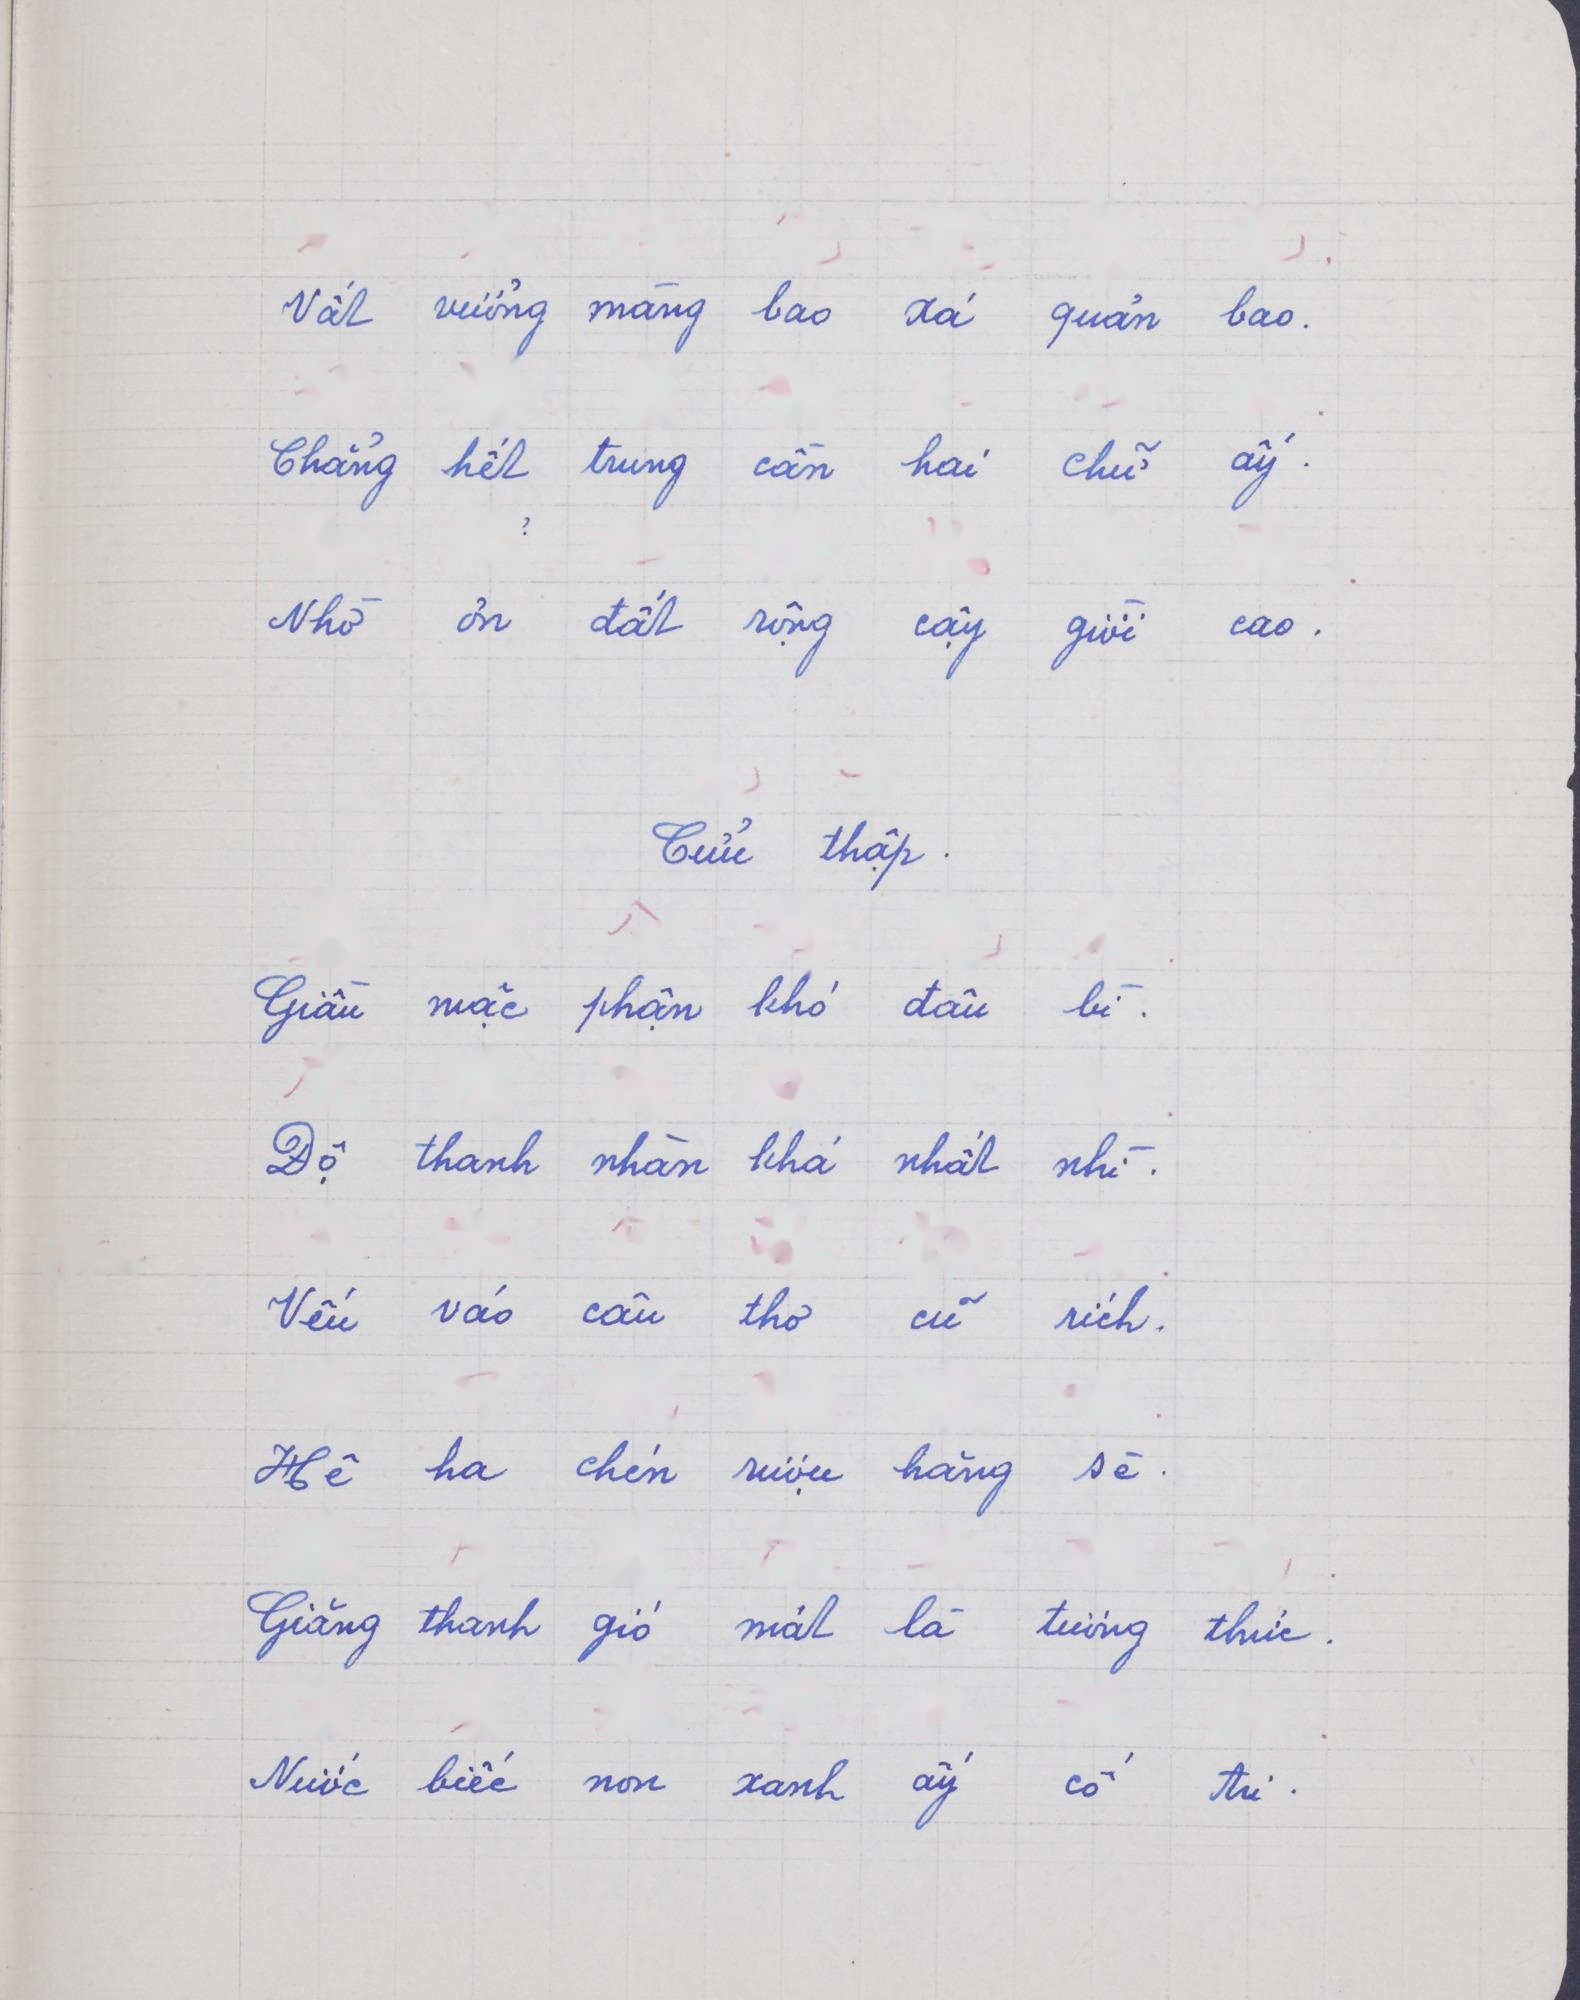 Vất vưởng màng bao xá quản bao.
Chẳng hết trung cần hai chữ ấy.
Nhờ ơn đất rộng cậy giời cao.
Cửu thập.
Giầu mặc phận khó đâu bì.
Độ thanh nhàn khá nhất nhì.
Vếu váo câu thơ cũ rích.
Hê ha chén rượu hăng sè.
Giăng thanh gió mát là tương thức.
Nước biếc non xanh ấy cố tri.